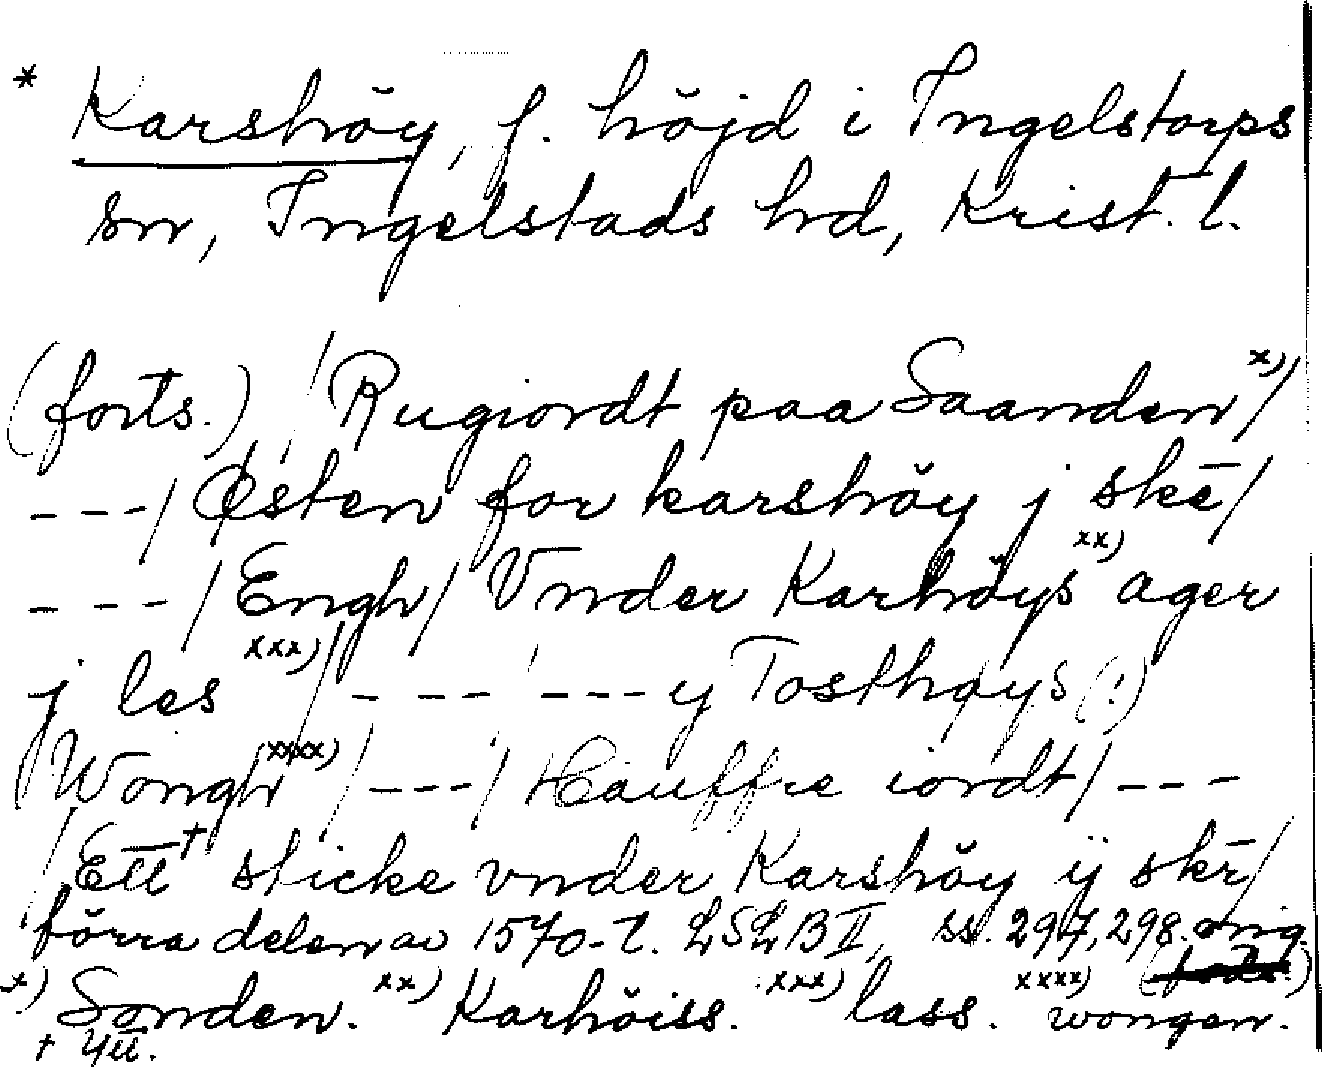 * Karshöy, f. höjd i Ingelstorps
sn, Ingelstads hd, Krist. l.
(forts.) / Rugiordt paa Saanden x) /
--- / Østen for karshöy j skē /
--- / Engh / Vnder Karhöys xx) ager
j les xxx) / --- --- y Tosthøys (!)
Wongh xxxx) / --- / Hauffre iordt / ---
/ Ett † sticke vnder Karshöy ÿ skē /
förra delen av 1570-t. LSLB II, ss. 297, 298. orig.
x) Sonden. xx) Karhöiss. xxx) lass. xxxx) wongen.
† ytt.